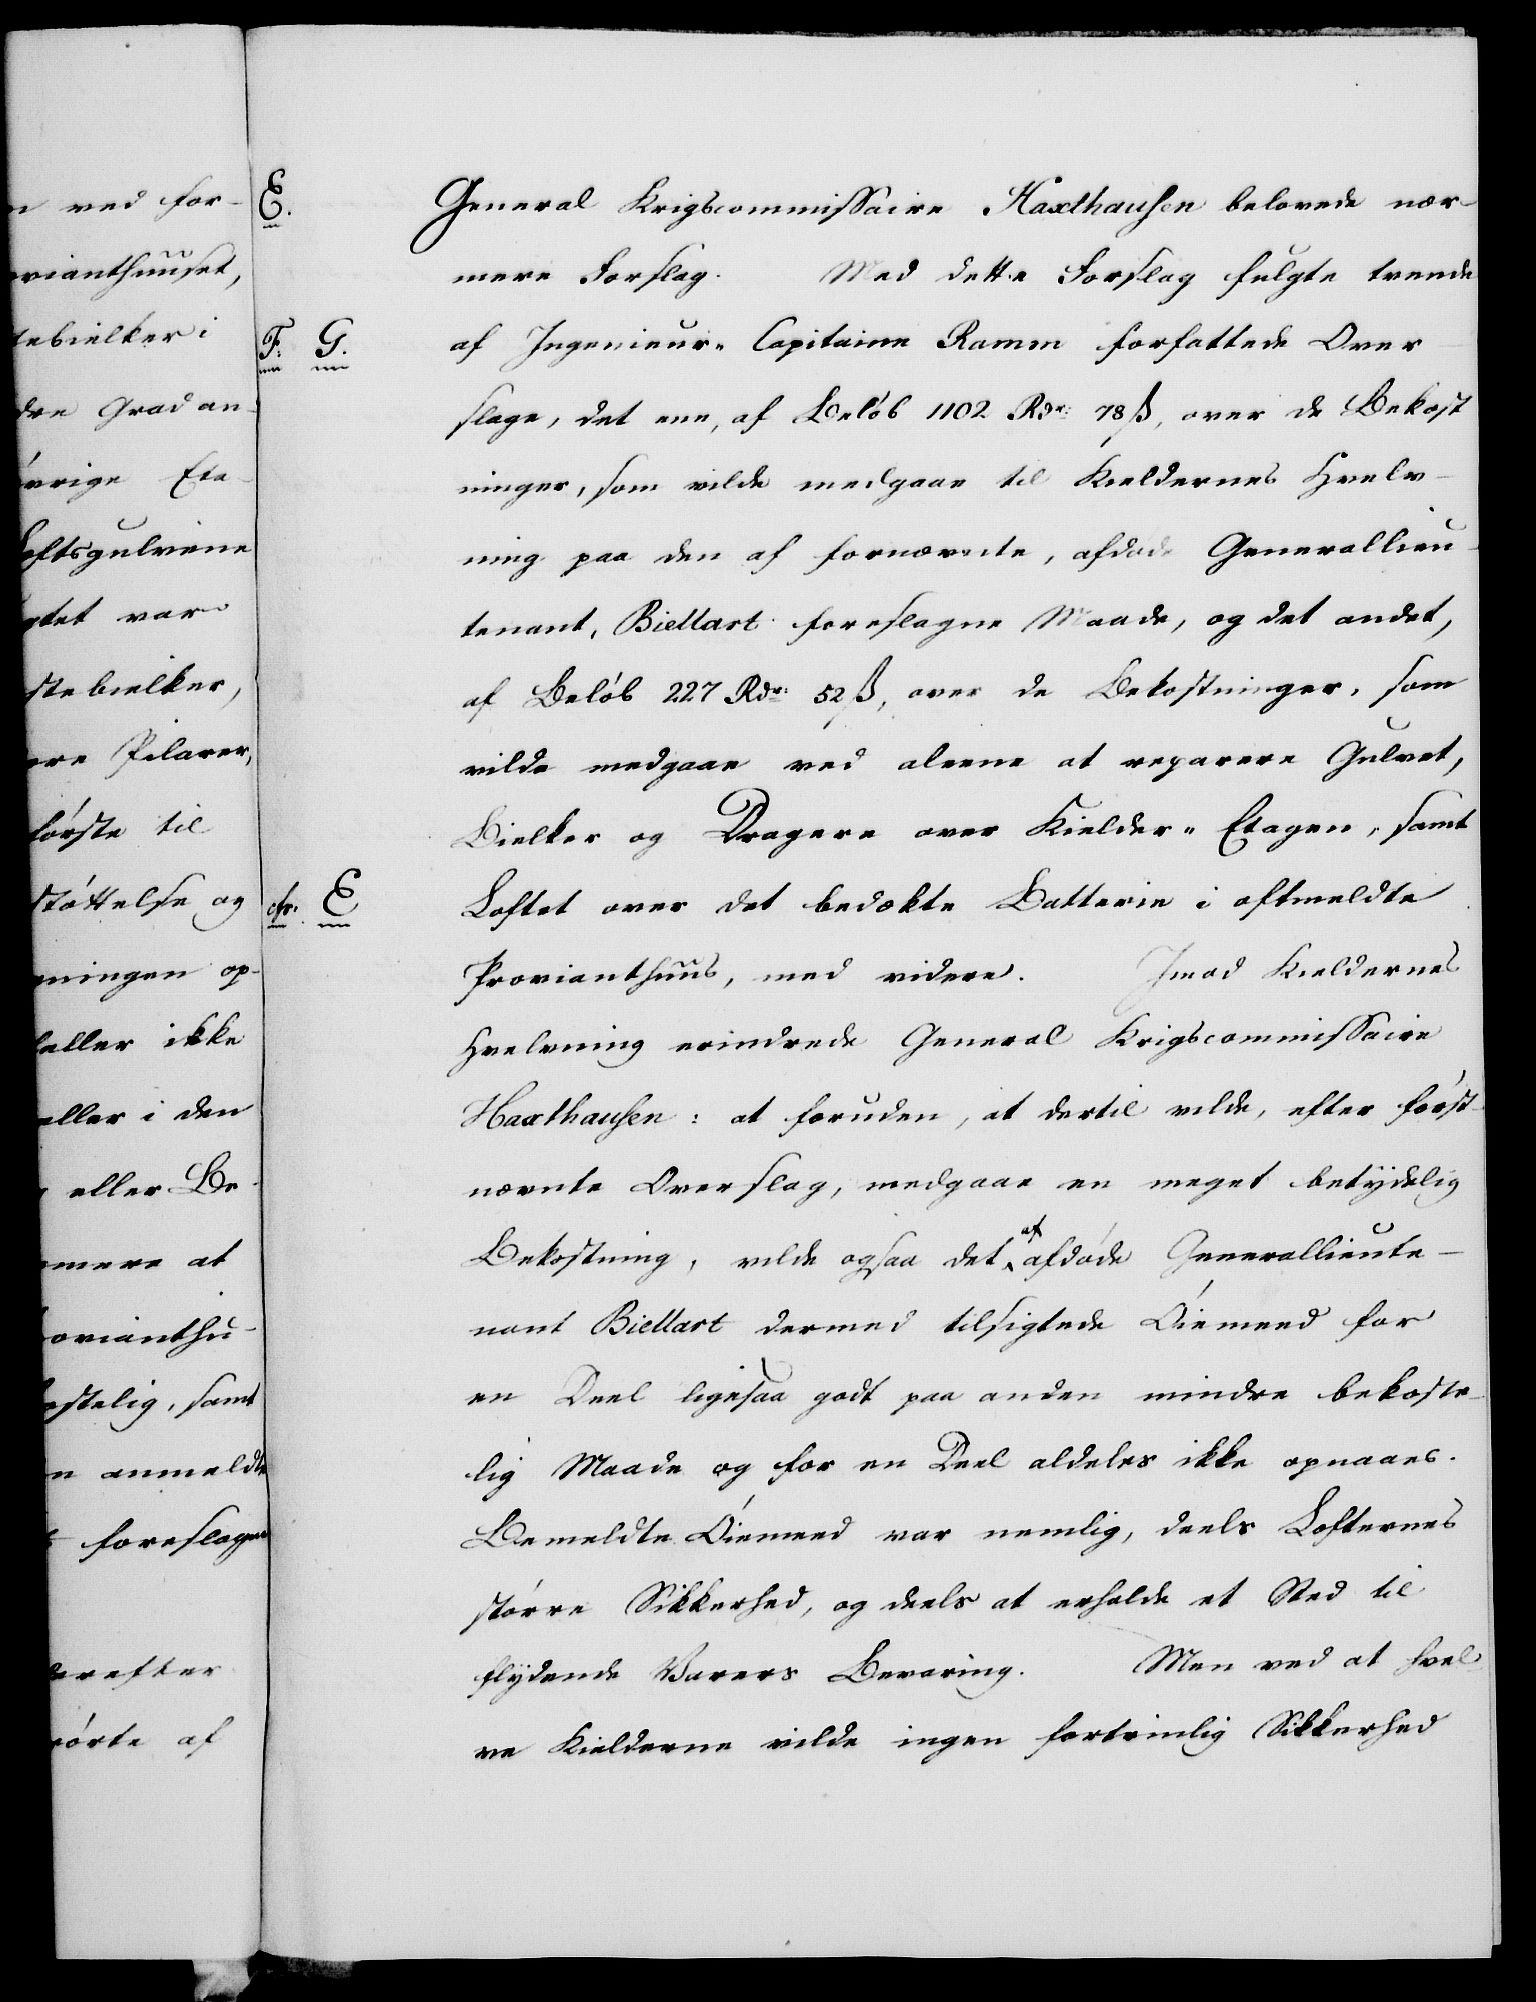 n ved for-
ovianthuuset,
tebielker i
dre Grad an-
övrige Eta-
oftsgulvene
gtet var
stebielker,
ere Pilarer,
förste til
stöttelse og
eller ikke
eller i den
eller Be-
mere at
ovianthu-
ostelig, samt
n anmeldte
foreslagne
derefter
rörte af
E.
General Krigscommissaire Haxthausen belovede nær-
mere Forslag. Med dette Forslag fulgte trende
F. G.
af Ingenieur- Capitaine Ramm forfattede Over
slage, det ene, af Belöb 1102 Rdr: 78 ß, over de Bekost
ninger, som vilde medgaae til Kieldernes Hvelv-
ning paa den af fornævnte, afdöde Generallieu-
tenant, Biellart foreslagne Maade, og det andet,
af Belöb 227 Rdr: 52 ß, over de Bekostninger, som
vilde medgaae ved aleene at reparere Gulvet,
Bielker og Dragere over Kielder- Etagen, samt
cfr. E
Loftet over det bedækte Batterie i oftmeldte
Provianthuus, med videre. Imod Kieldernes
Hvelvning erindrede General Krigscommissaire
Haxthausen: at foruden, at dertil vilde, efter först-
nævnte Overslag, medgaae en meget betÿdelig
Bekostning, vilde ogsaa det af afdöde Generallieute-
nant Biellart dermed tilsigtede Öiemeed for
en Deel ligesaa godt paa anden mindre bekoste-
lig Maade og for en Deel aldeles ikke opnaaes.
Bemeldte Öiemeed var nemlig, deels Lofternes
större Sikkerhed, og deels at erholde et Sted til
flÿdende Varers Bevaring. Men ved at hvel
ve Kielderne vilde ingen fortrinlig Sikkerhed